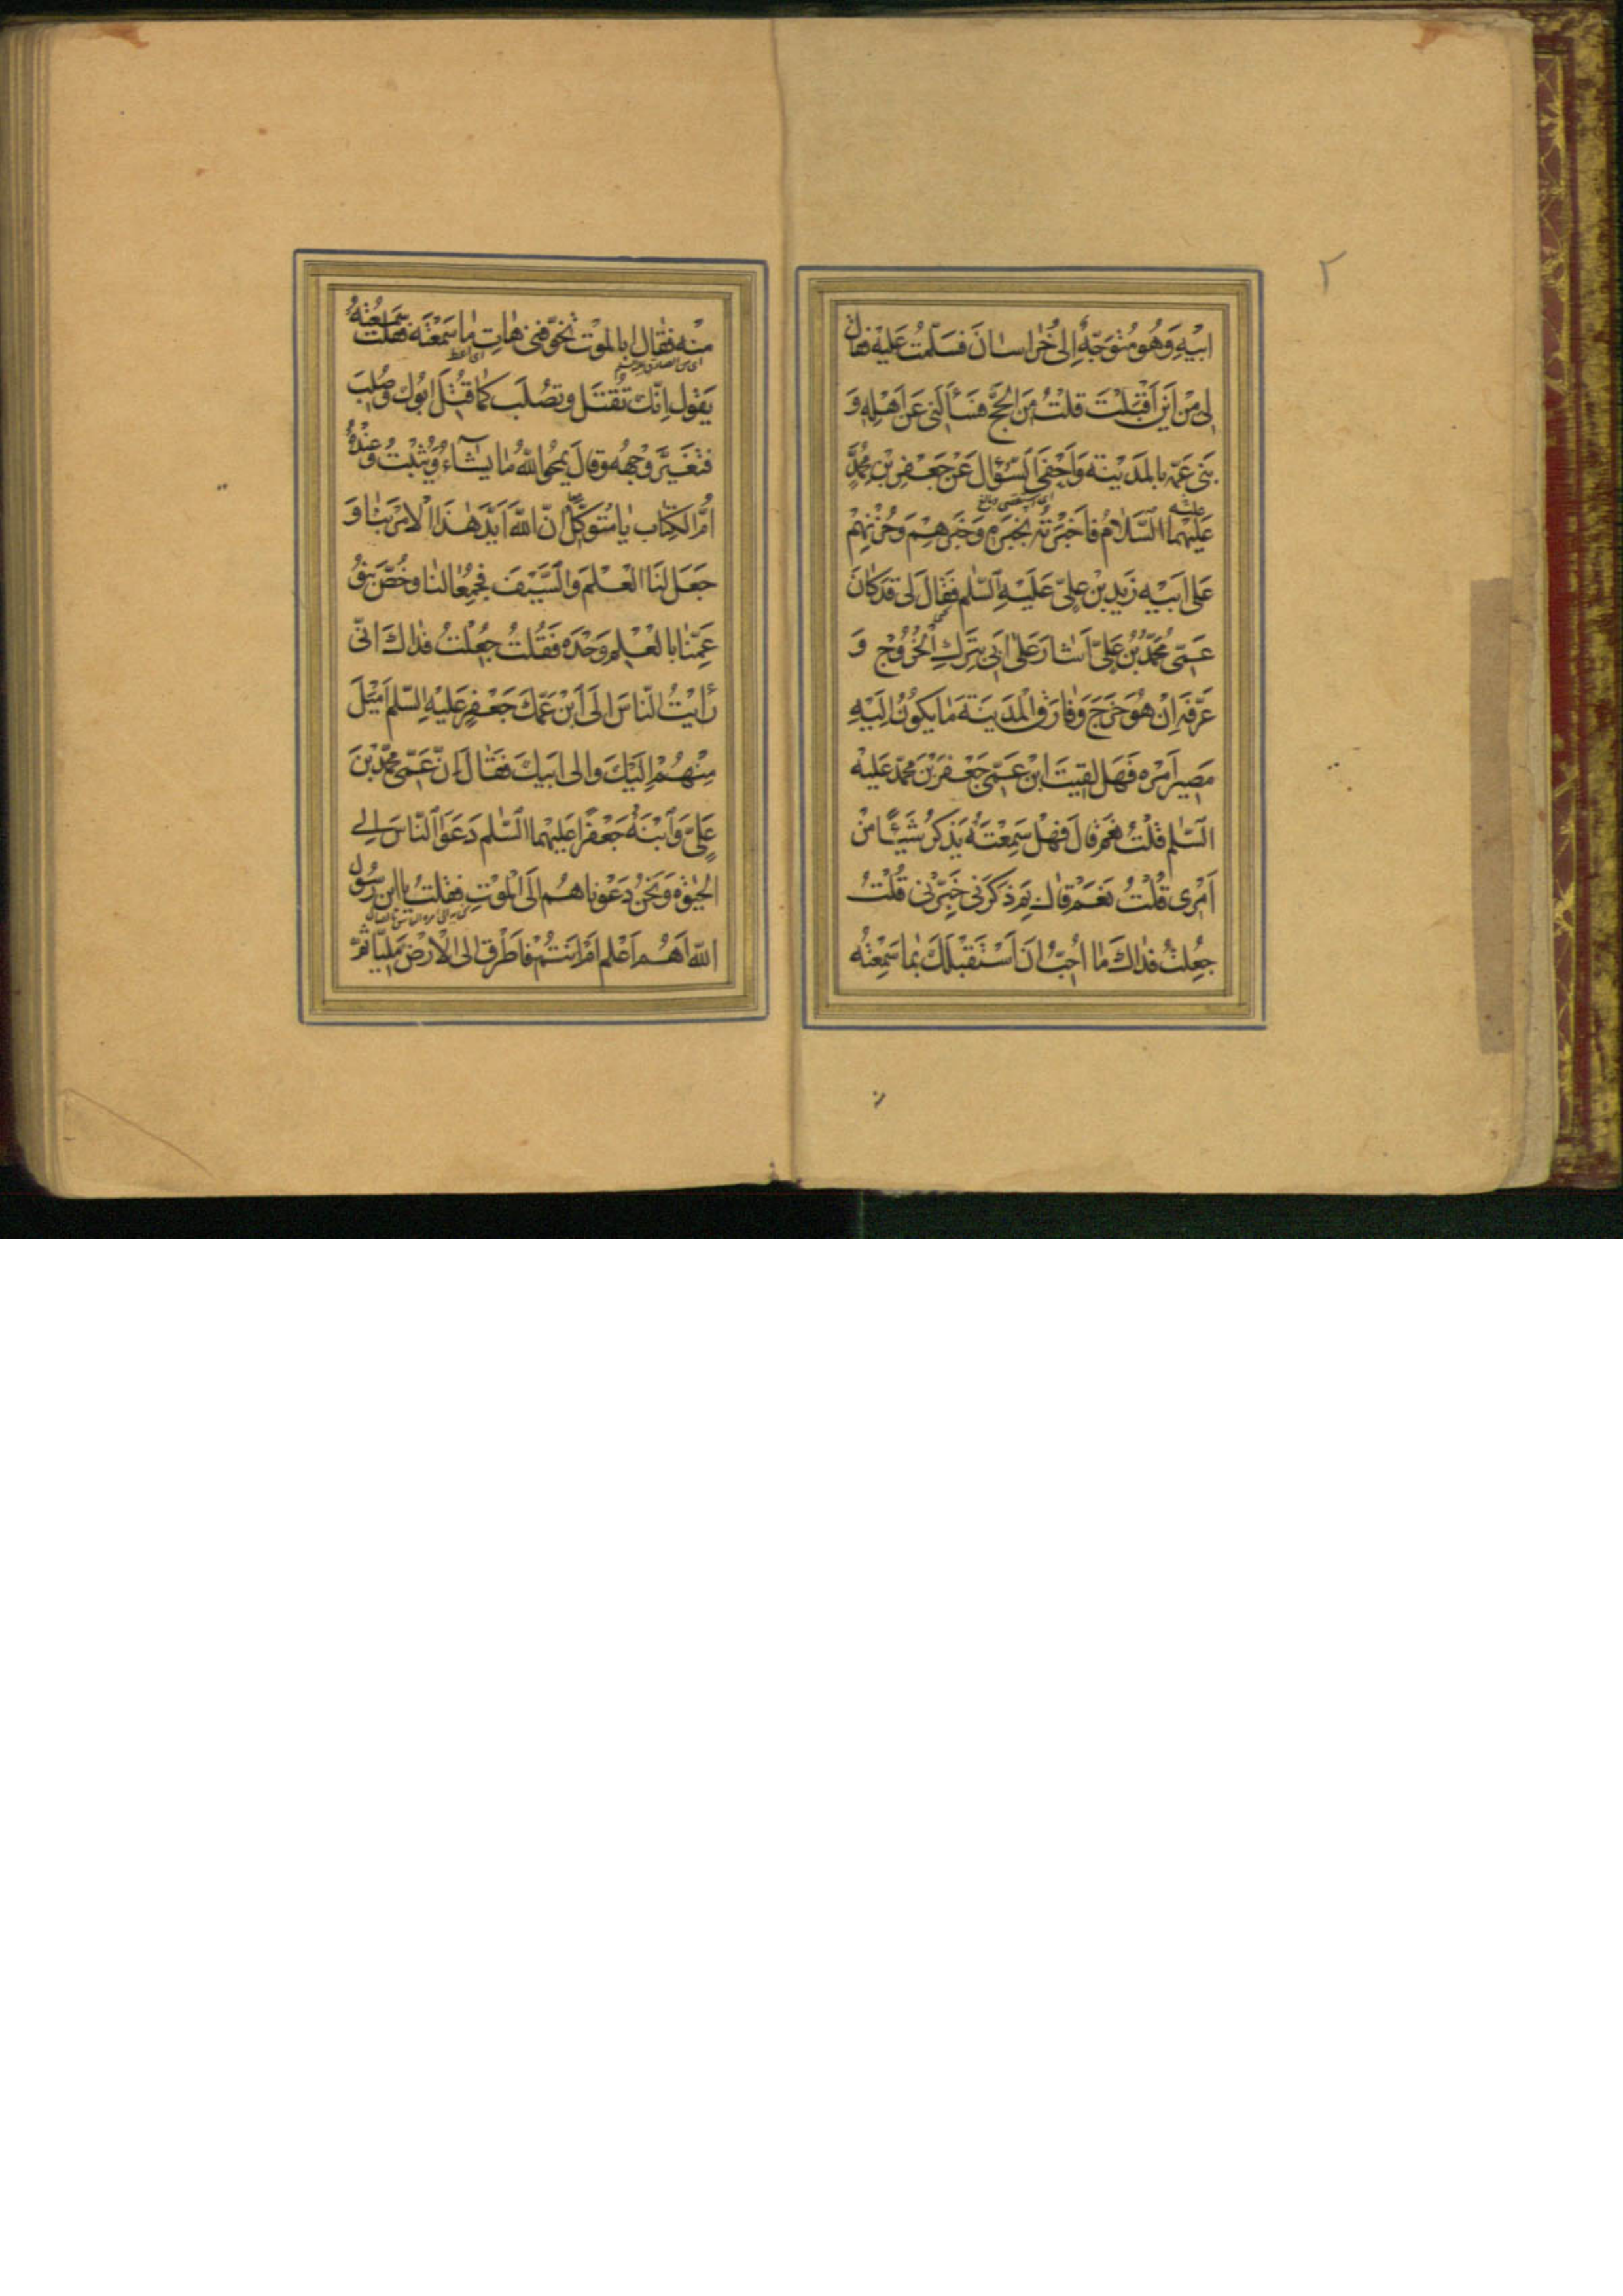 ٢
اَبيهِ وَهُوَ مُتَوَجِّهٌ اِلىٰ خُراسانَ فَسَلَّمْتُ عَلَيْهِ فَقالَ
لى مِنْ اَيْنَ اَقْبَلْتَ قُلْتُ مِنَ الْحَجِّ فَسَأَلَنى عَنْ اَهْلِهِ وَ
بَنى عَمِّهِ بِالْمَدينَةِ وَاَحْفَى السُّؤالَ عَنْ جَعْفَرِ بْنِ مُحَمَّدٍ
عَلَيْهِمَا السَّلامُ فَاَخْبَرْتُهُ بِخَبَرِهِ وَخَبَرِهِمْ وَحُزْنِهِمْ
عَلىٰ اَبيهِ زَيْدِ بْنِ عَلِىٍّ عَلَيْهِ السَّلٰمُ فَقالَ لى قَدْ كانَ
عَمّى مُحَمَّدُ بْنُ عَلِىٍّ اَشارَ عَلىٰ اَبى بِتَرْكِ الْخُرُوجِ وَ
عَرَّفَهُ اِنْ هُوَ خَرَجَ وَفارَقَ الْمَدينَةَ ما يَكُونُ اِلَيْهِ
مَصيرُ اَمْرِهِ فَهَلْ لَقيتَ ابْنَ عَمّى جَعْفَرَ بْنَ مُحَمَّدٍ عَلَيْهِ
السَّلٰمُ قُلْتُ نَعَمْ قالَ فَهَلْ سَمِعْتَهُ يَذْكُرُ شَيْئًا مِنْ
اَمْرى قُلْتُ نَعَمْ قالَ بِمَ ذَكَرَنى خَبِّرْنى قُلْتُ
جُعِلْتُ فِداكَ ما اُحِبُّ اَنْ اَسْتَقْبِلَكَ بِما سَمِعْتُهُ
مِنْهُ فَقالَ اَبِالْمَوْتِ تُخَوِّفُنى هاتِ ما سَمِعْتَهُ فَقُلْتُ سَمِعْتُهُ
يَقُولُ اِنَّكَ تُقْتَلُ وَتُصْلَبُ كَما قُتِلَ اَبُوكَ وَصُلِبَ
فَتَغَيَّرَ وَجْهُهُ وَقالَ يَمْحُو اللّٰهُ ما يَشاءُ وَيُثْبِتُ وَعِنْدَهُ
اُمُّ الْكِتابِ يا مُتَوَكِّلُ اِنَّ اللّٰهَ اَيَّدَ هٰذَا الْاَمْرَ بِنا وَ
جَعَلَ لَنَا الْعِلْمَ وَالسَّيْفَ فَجُمِعا لَنا وَخُصَّ بَنُو
عَمِّنا بِالْعِلْمِ وَحْدَهُ فَقُلْتُ جُعِلْتُ فِداكَ اِنّى
رَاَيْتُ النّاسَ اِلَى ابْنِ عَمِّكَ جَعْفَرٍ عَلَيْهِ السَّلٰمُ اَمْيَلَ
مِنْهُمْ اِلَيْكَ وَاِلىٰ اَبيكَ فَقالَ اِنَّ عَمّى مُحَمَّدَ بْنَ
عَلِىٍّ وَابْنَهُ جَعْفَرًا عَلَيْهِمَا السَّلٰمُ دَعَوَا النّاسَ اِلَى
الْحَيٰوةِ وَنَحْنُ دَعَوْناهُمْ اِلَى الْمَوْتِ فَقُلْتُ يَا ابْنَ رَسُولِ
اللّٰهِ اَهُمْ اَعْلَمُ اَمْ اَنْتُمْ فَاَطْرَقَ اِلَى الْاَرْضِ مَلِيًّا ثُمَّ